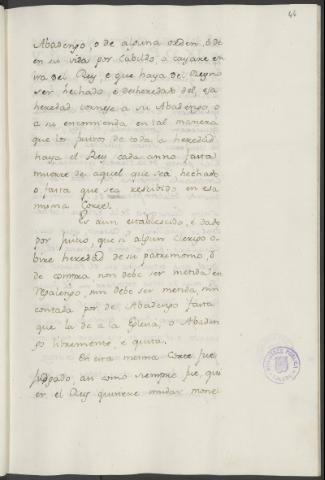 44
Abadengo, o de alguna orden, ò de
en su vida por Cabildo, o cayare en
ira del Rey, e que haya del Regno
ser hechado, e desheredado del, esa
heredad torneje a su Abadengo, o
a su encomienda en tal manera
que los frutos de toda la heredad
haya el Rey cada anno fasta
muerte de aquel que sea hechado
o fasta que sea rescibido en esa
misma Corte.
Es aun establescido, è dado
por juicio, que si algun Clerigo o-
biere heredad de su patrimonio, ò
de compra non debe ser metida en
Regalengo, nin debe ser metida, nin
contada por de Abadengo fasta
que la de a la Eglesia, o Abaden
go libremente, e quita.
En esta misma Corte fue
judgado, asi como siempre fue, qui
er, el Rey quisiere mudar mone